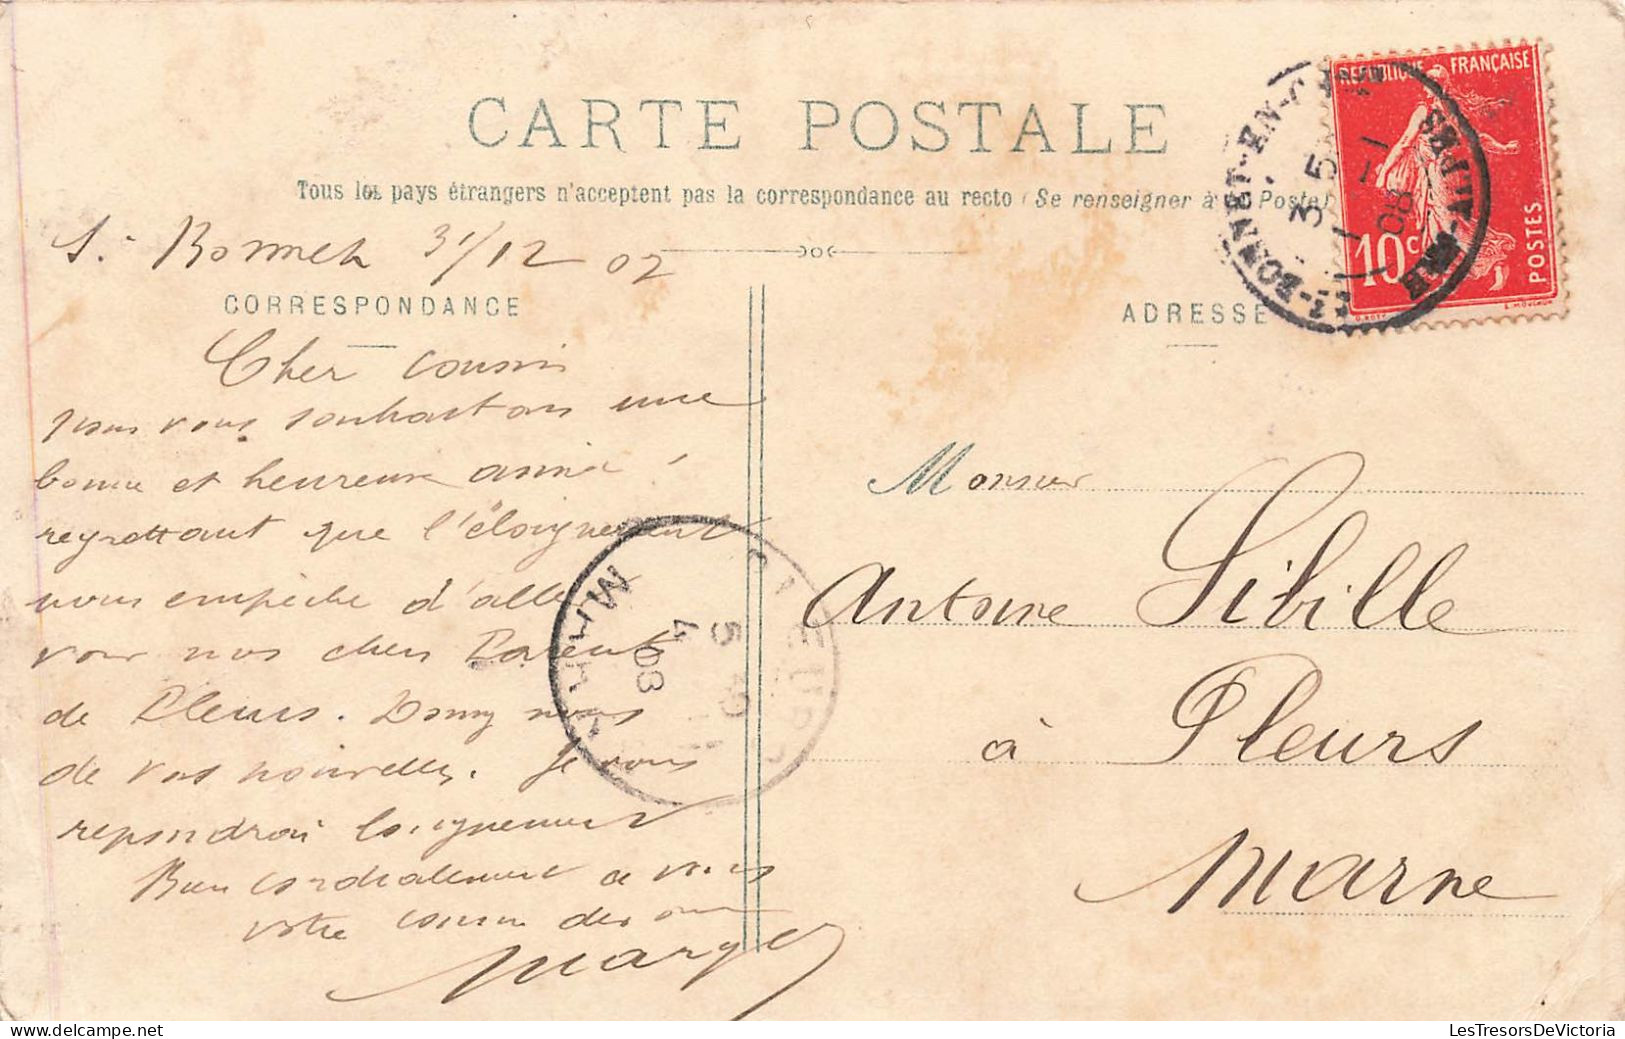 CARTE POSTALE
Tous les pays étrangers n'acceptent pas la correspondance au recto (Se renseigner à Poste)
S. Bonnet 31/12 07
CORRESPONDANCE
Cher cousin
nous vous souhaitons une
bonne et heureuse année,
regrettant que l'éloignement
nous empêche d'aller
voir nos chers Parents
de Pleurs. Donnez nous
de vos nouvelles. Je vous
repondrai longuement
Bien cordialement a vous
votre cousin
ADRESSE
Monsieur
Antoine Sibille
à Pleurs
Marne
REPUBLIQUE FRANÇAISE
10c
POSTES
O. ROTY
L. MOUCHON
ST-BONNET-EN-CHAMP
HTES-ALPES
3 5
1
08
PLEURS
MARNE
5
4
08
LesTresorsDeVictoria